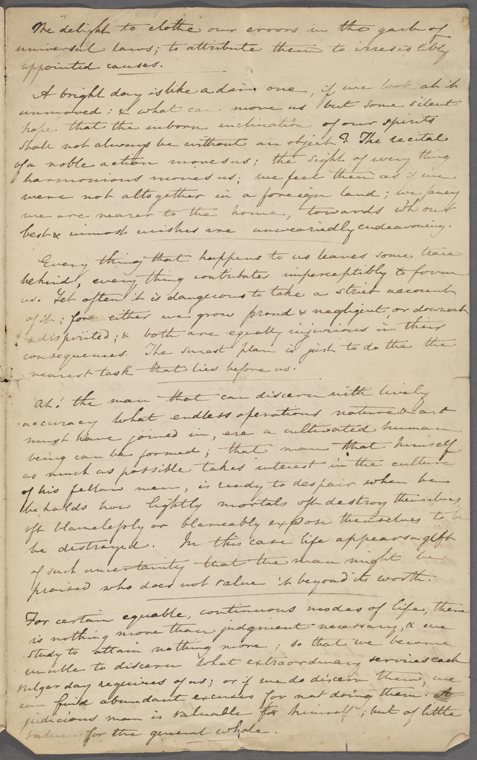 We delight to clothe our errors in the garb of
universal laws; to attribute them to irresistibly
appointed causes.
A bright day is like a dim one, if we look at it
unmoved: & what can move us but some silent
hope that the inborn inclination of our spirits
shall not always be without an object? The recital
of a noble action moves us; the sight of every thing
harmonious moves us; we feel then as if we
were not altogether in a foreign land; we fancy
we are nearer to the home, towards wh our
best & inmost wishes are unweariedly endeavouring.
Every thing that happens to us leaves some trace
behind, every thing contributes imperceptibly to form
us. Yet often it is dangerous to take a strict account
of it; for either we grow proud & negligent, or downcast
& dispirited; & both are equally injurious in their
consequences. The surest plan is just to do the the
nearest task that lies before us.
Ah! the man that can discern with lively
accuracy what endless operations nature & art
must have joined in, ere a cultivated human
being can be formed; that man that himself
as much as possible takes interest in the culture
of his fellow men, is ready to despair when he
beholds how lightly mortals oft destroy themselves,
oft blamelessly or blameably expose themselves to be
be destroyed. In this case life appears a gift
of such uncertainty that the man might be
praised who does not value it beyond its worth.
For certain equable, continuous modes of life, there
is nothing more than judgment necessary, & we
study to attain nothing more; so that we become
unable to discern what extraordinary services each
vulgar day requires of us; or if we do discern them, we
can find abundant excuses for not doing them. A
judicious man is valuable to himself; but of little
value for the general whole.